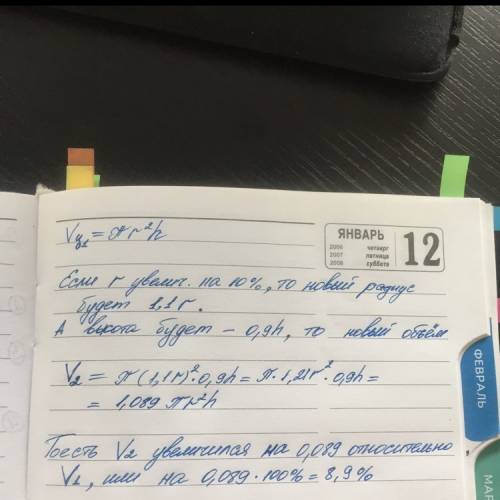 Vц₁ = πr²h
ЯНВАРЬ 12
2006 четверг
2007 пятница
2008 суббота
Если r увелич. на 10%, то новый радиус
будет 1,1r.
А высота будет – 0,9h, то новый объём
V₂ = π(1,1r)²·0,9h = π·1,21r²·0,9h =
= 1,089 πr²h
Тоесть V₂ увеличилая на 0,089 относительно
V₁, или на 0,089·100% = 8,9%
ФЕВРАЛЬ
МАР